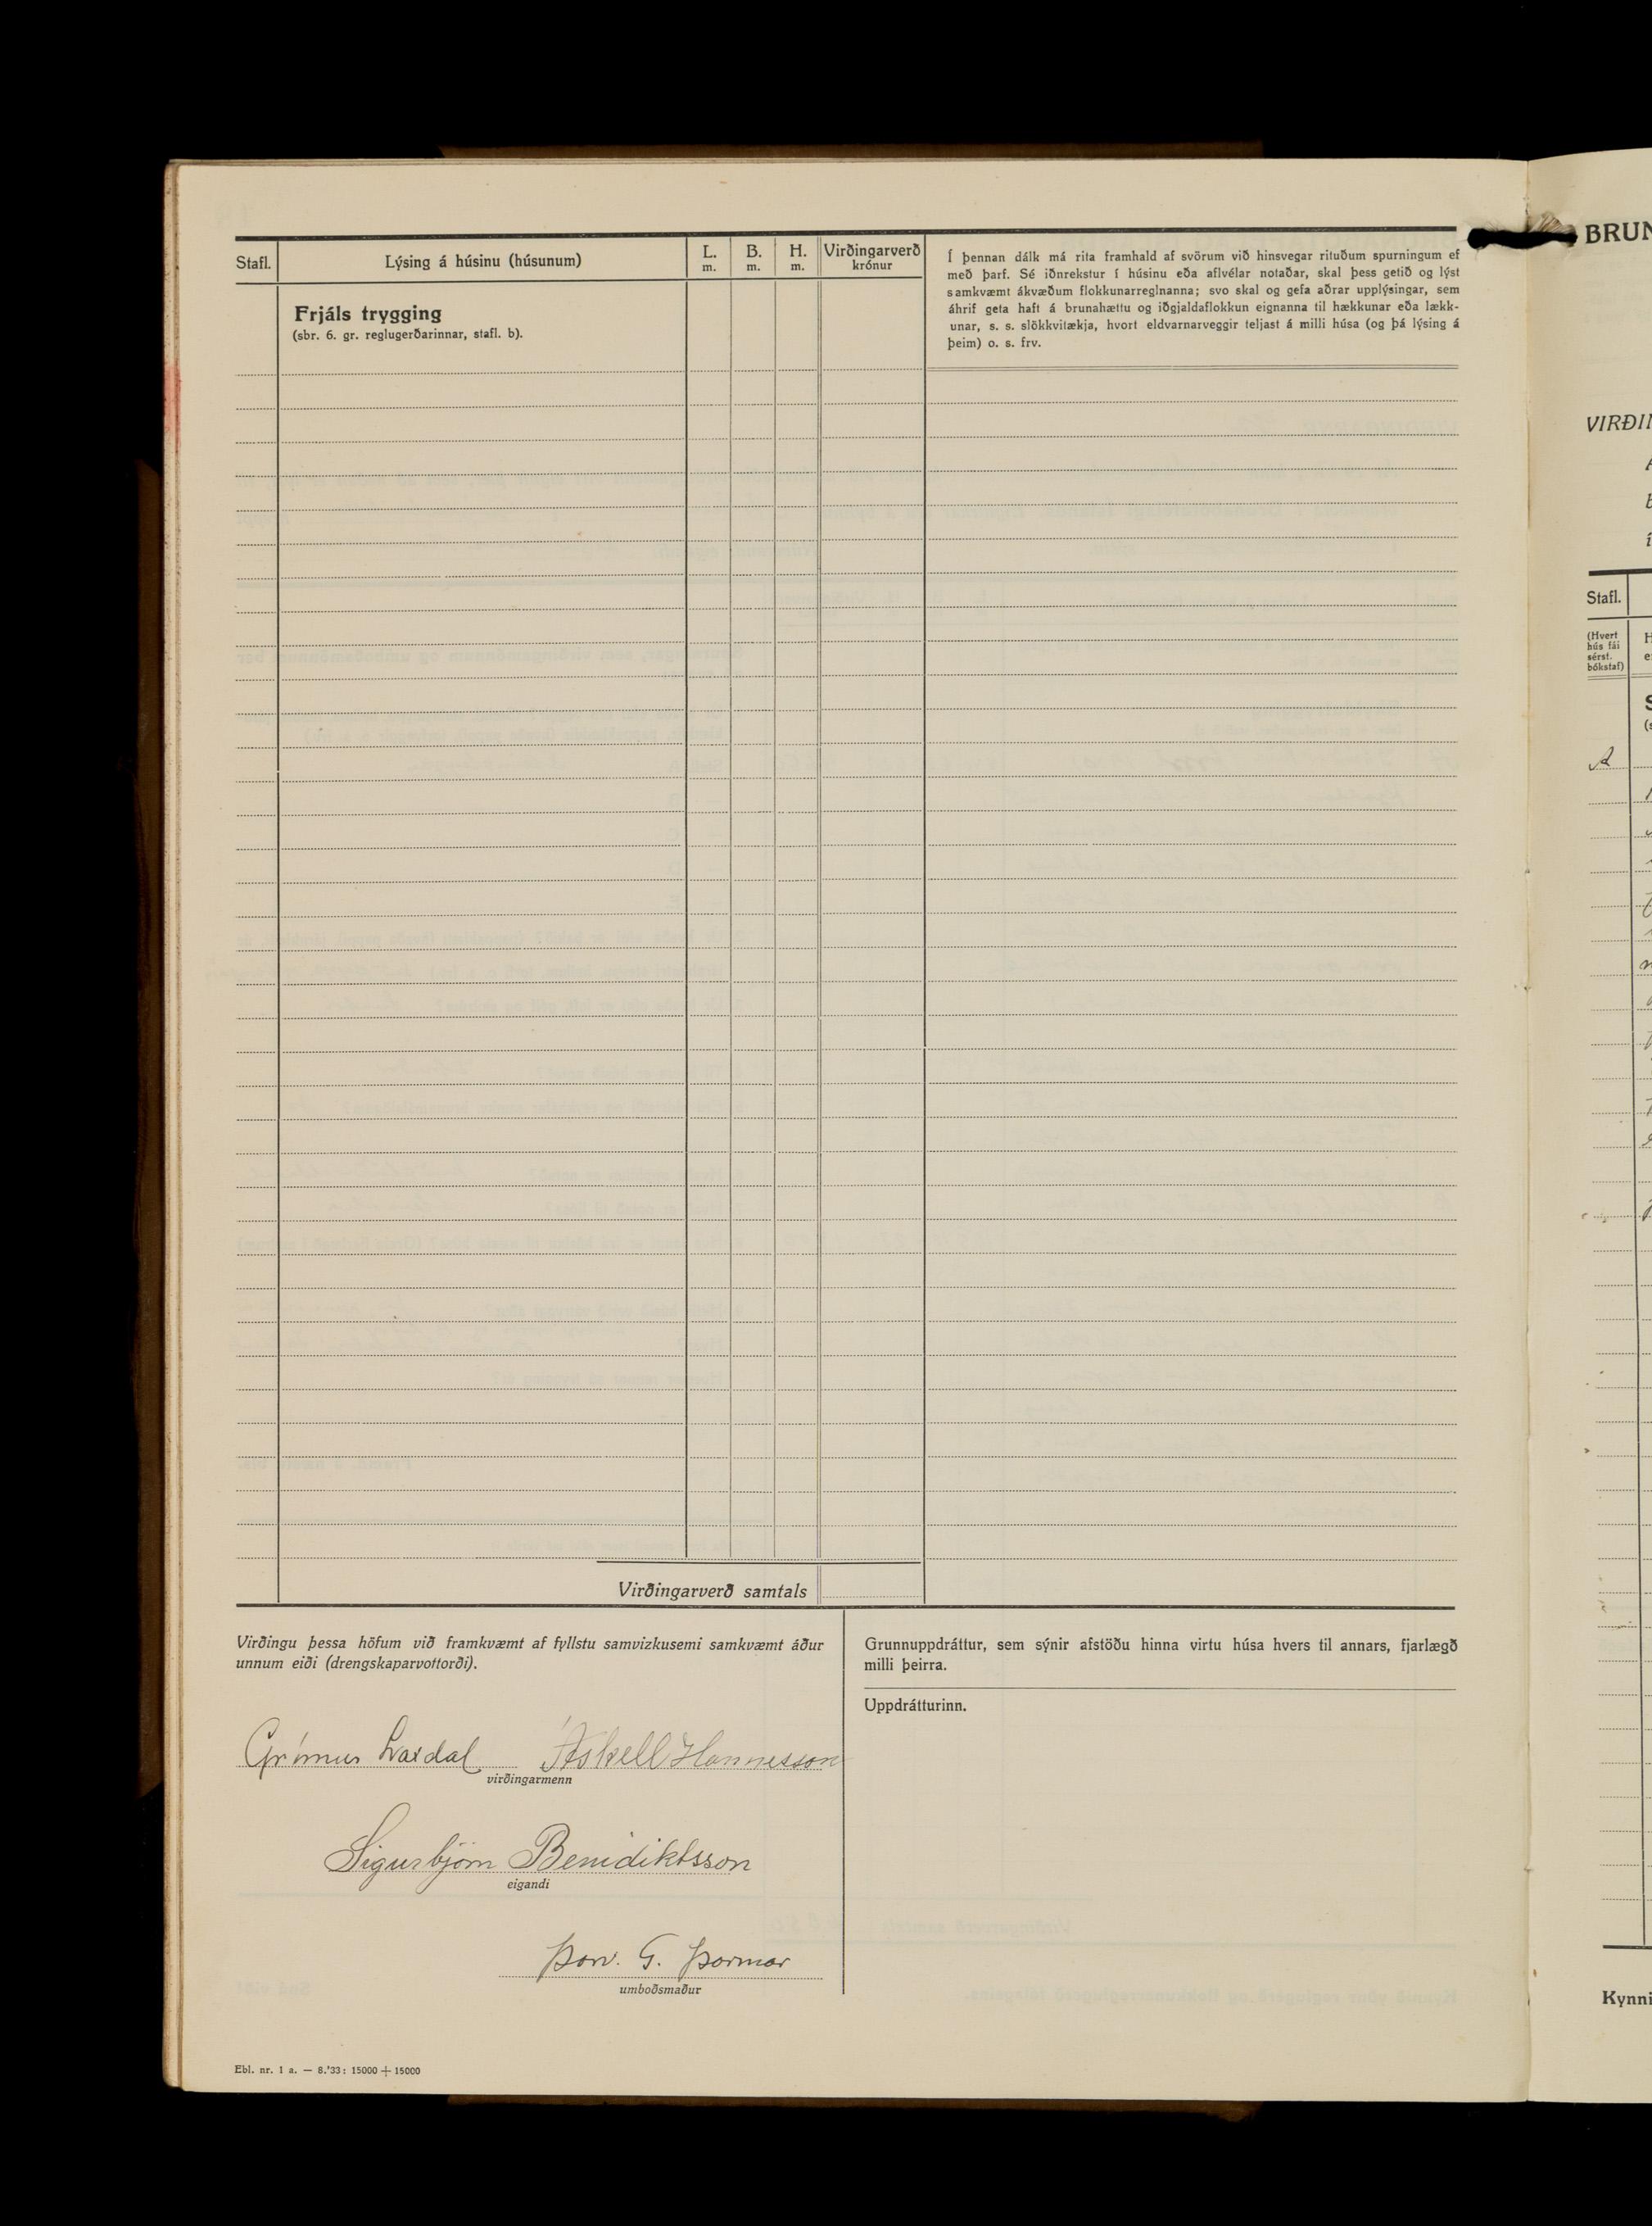 Stafl.
Lýsing á húsinu (húsunum)
L.
m.
B.
m.
H.
m.
Virðingarverð
krónur
Frjáls trygging
(sbr. 6. gr. reglugerðarinnar, stafl. b).
Í þennan dálk má rita framhald af svörum við hinsvegar rituðum spurningum ef
með þarf. Sé iðnrekstur í húsinu eða aflvélar notaðar, skal þess getið og lýst
samkvæmt ákvæðum flokkunarreglnanna; svo skal og gefa aðrar upplýsingar, sem
áhrif geta haft á brunahættu og iðgjaldaflokkun eignanna til hækkunar eða lækk-
unar, s. s. slökkvitækja, hvort eldvarnarveggir teljast á milli húsa (og þá lýsing á
þeim) o. s. frv.
Virðingarverð samtals
Virðingu þessa höfum við framkvæmt af fyllstu samvizkusemi samkvæmt áður
unnum eiði (drengskaparvottorði).
Grímur Laxdal Áskell Hannesson
virðingarmenn
Sigurbjörn Benidiktsson
eigandi
Þorv. G. Þormar
umboðsmaður
Grunnuppdráttur, sem sýnir afstöðu hinna virtu húsa hvers til annars, fjarlægð
milli þeirra.
Uppdrátturinn.
Ebl. nr. 1 a. — 8.'33: 15000 + 15000
BRUN
VIRÐIN
Stafl.
(Hvert
hús fái
sérst.
bókstaf)
A
Kynni